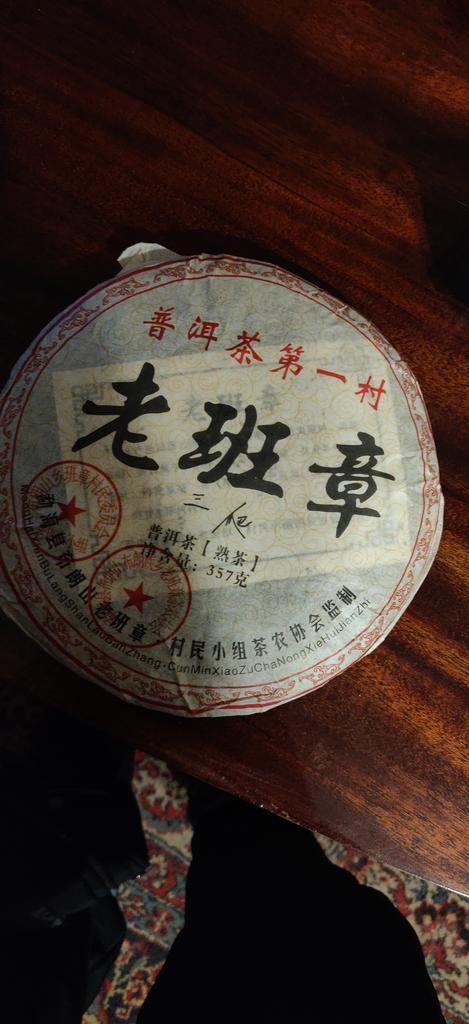 普洱茶第一村
老班章
三
普洱茶【熟茶】
净含量：357克
勐海县布朗山老班章·村民小组茶农协会监制
BuLangShanLaoBanZhang·CunMinXiaoZuChaNongXieHuiJianZhi